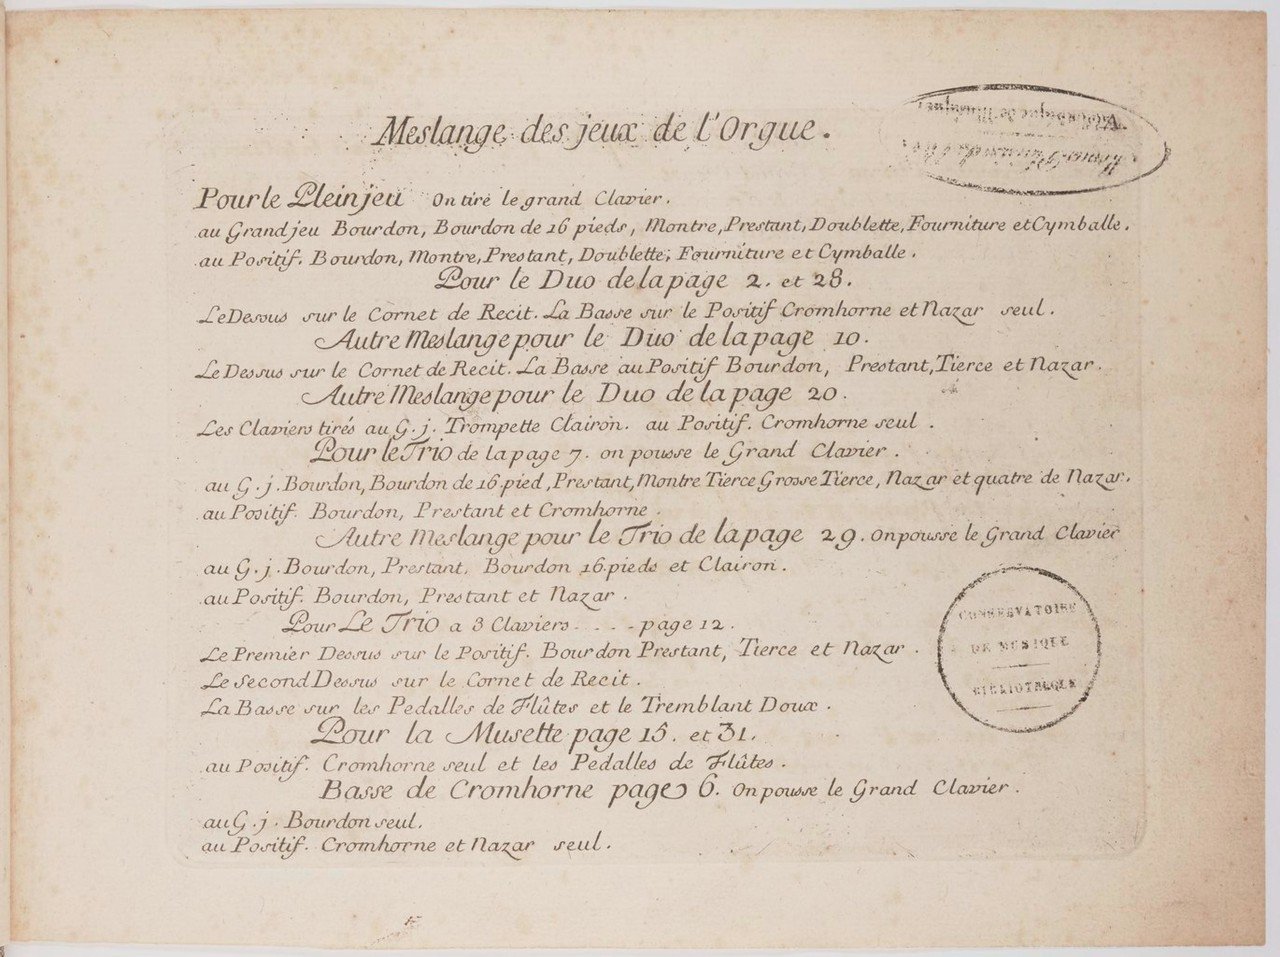 Meslange des jeux de l'Orgue.
Pour le Plein jeu On tire le grand Clavier.
au Grand jeu Bourdon, Bourdon de 16 pieds, Montre, Prestant, Doublette, Fourniture et Cymballe.
au Positif. Bourdon, Montre, Prestant, Doublette, Fourniture et Cymballe.
Pour le Duo de la page 2. et 28.
Le Dessus sur le Cornet de Recit. La Basse sur le Positif Cromhorne et Nazar seul.
Autre Meslange pour le Duo de la page 10.
Le Dessus sur le Cornet de Recit. La Basse au Positif Bourdon, Prestant, Tierce et Nazar.
Autre Meslange pour le Duo de la page 20.
Les Claviers tirés au G. j. Trompette Clairon. au Positif. Cromhorne seul.
Pour le Trio de la page 7. on pousse le Grand Clavier.
au G. j. Bourdon, Bourdon de 16 pied, Prestant, Montre Tierce Grosse Tierce, Nazar et quatre de Nazar.
au Positif. Bourdon, Prestant et Cromhorne.
Autre Meslange pour le Trio de la page 29. On pousse le Grand Clavier
au G. j. Bourdon, Prestant, Bourdon 16. pieds et Clairon.
au Positif. Bourdon, Prestant et Nazar.
Pour Le Trio a 3 Claviers . . . . page 12.
Le Premier Dessus sur le Positif. Bourdon Prestant, Tierce et Nazar.
Le Second Dessus sur le Cornet de Recit.
La Basse sur les Pedalles de Flûtes et le Tremblant Doux.
Pour la Musette page 15. et 31.
au Positif. Cromhorne seul et les Pedalles de Flûtes.
Basse de Cromhorne page 6. On pousse le Grand Clavier.
au G. j. Bourdon seul.
au Positif. Cromhorne et Nazar seul.
CONSERVATOIRE
DE MUSIQUE
BIBLIOTHEQUE